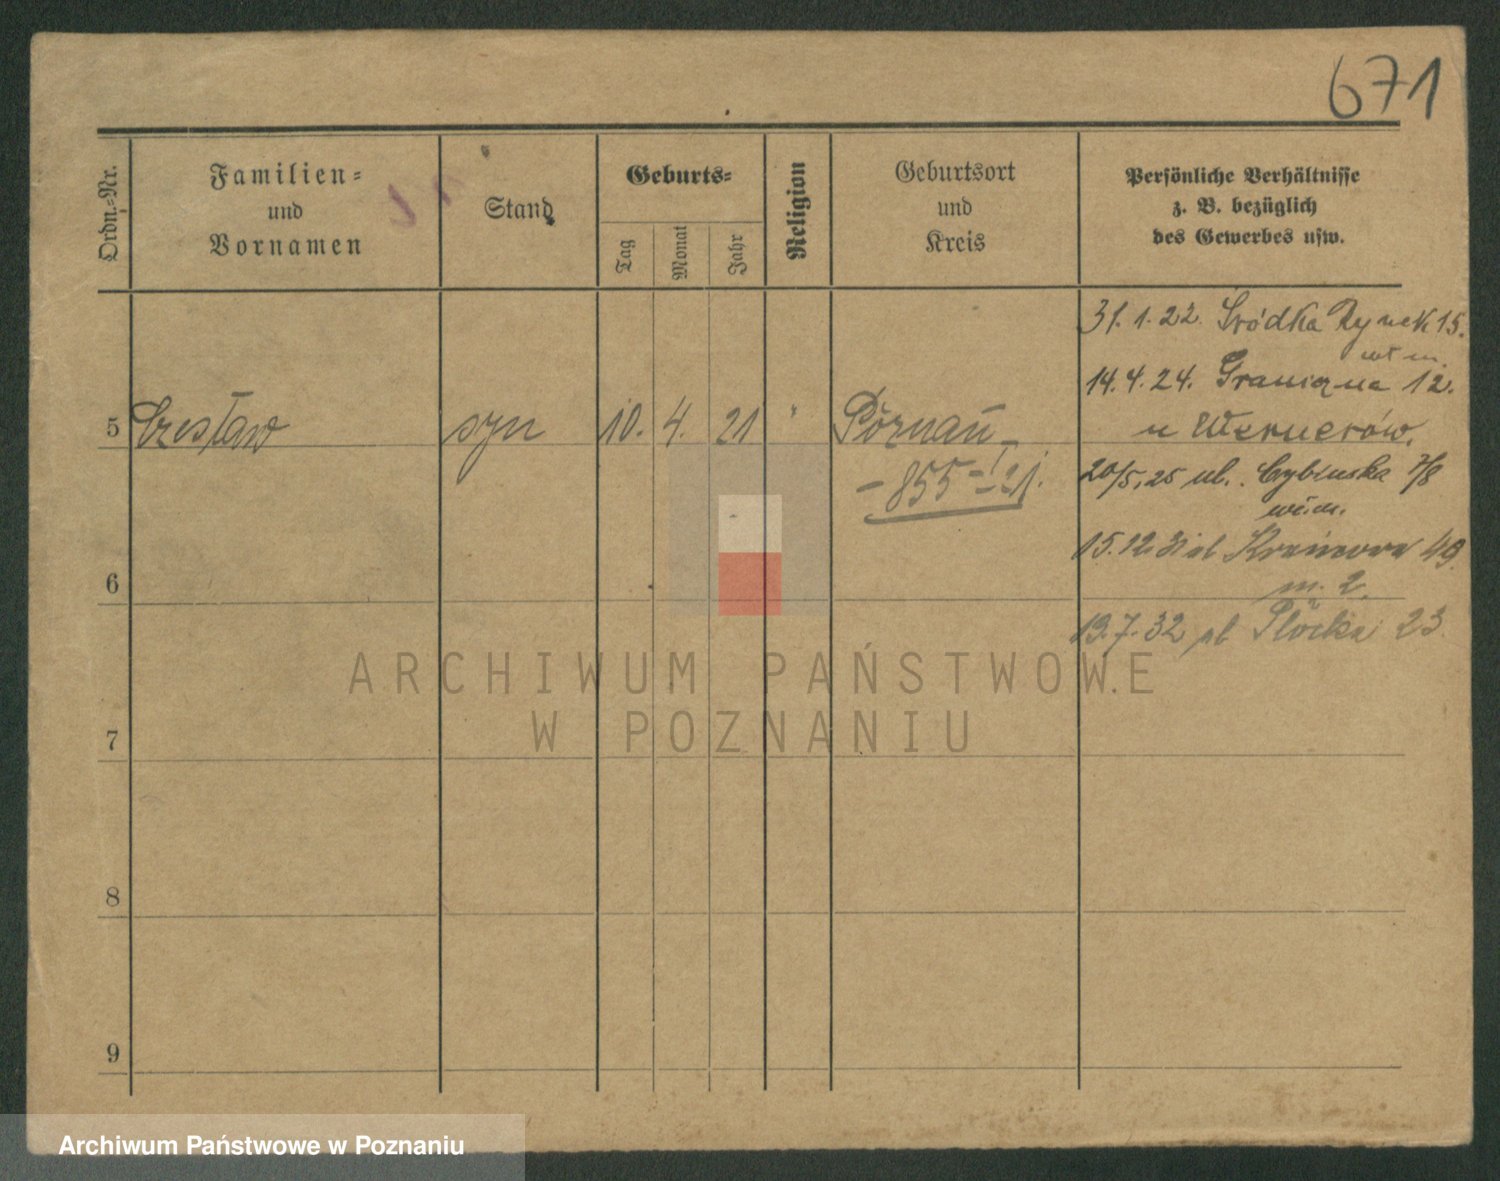 671
Ordn.-Nr.
Familien-
und
Vornamen
Stand
Geburts-
Tag
Monat
Jahr
Religion
Geburtsort
und
Kreis
Persönliche Verhältnisse
z. B. bezüglich
des Gewerbes usw.
31. 1. 22. Śródka Rynek 15.
wł m.
14. 4. 24. Graniczna 12.
u Wernerów.
5 Czesław syn 10. 4. 21 " Poznań
20/5. 25 ul. Cybinska 7/8
- 855 - I 21.
15. 12. 31 ul 49
m. 2.
6
19. 7. 32 ul Płocka 23
ARCHIWUM PAŃSTWOWE
W POZNANIU
7
8
9
Archiwum Państwowe w Poznaniu